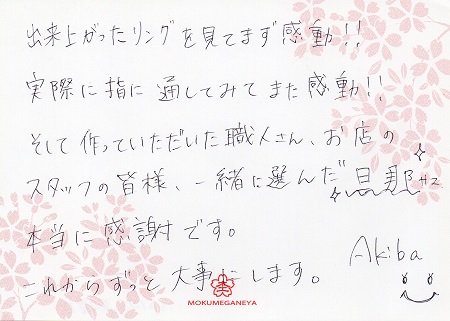 出来上がったリングを見てまず感動!!
実際に指に通してみてまた感動!!
そして作っていただいた職人さん、お店の
スタッフの皆様、一緒に選んだ旦那サマ
本当に感謝です。
これからずっと大事にします。
Akiba
MOKUMEGANEYA